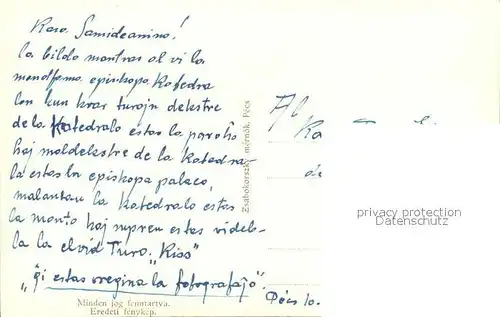 Kara Samideanino!
la bildo montras al vi la
mondfama episkopa Katedra
lon kun kvar turojn dekstre
de la Katedralo estas la paroĥo
kaj maldekstre de la Katedra-
la estas la episkopa palaco,
malantau la Katedralo estas
la monto kaj supren estas videb-
la la elvid Turo. "Kiss"
"Ĝi estas vregina la fotografaĵo".
Minden jog fenntartva.
Eredeti fénykép.
Zsabokorszky mérnök, Pécs
Al
Ka
Pécs 10.
privacy protection
Datenschutz